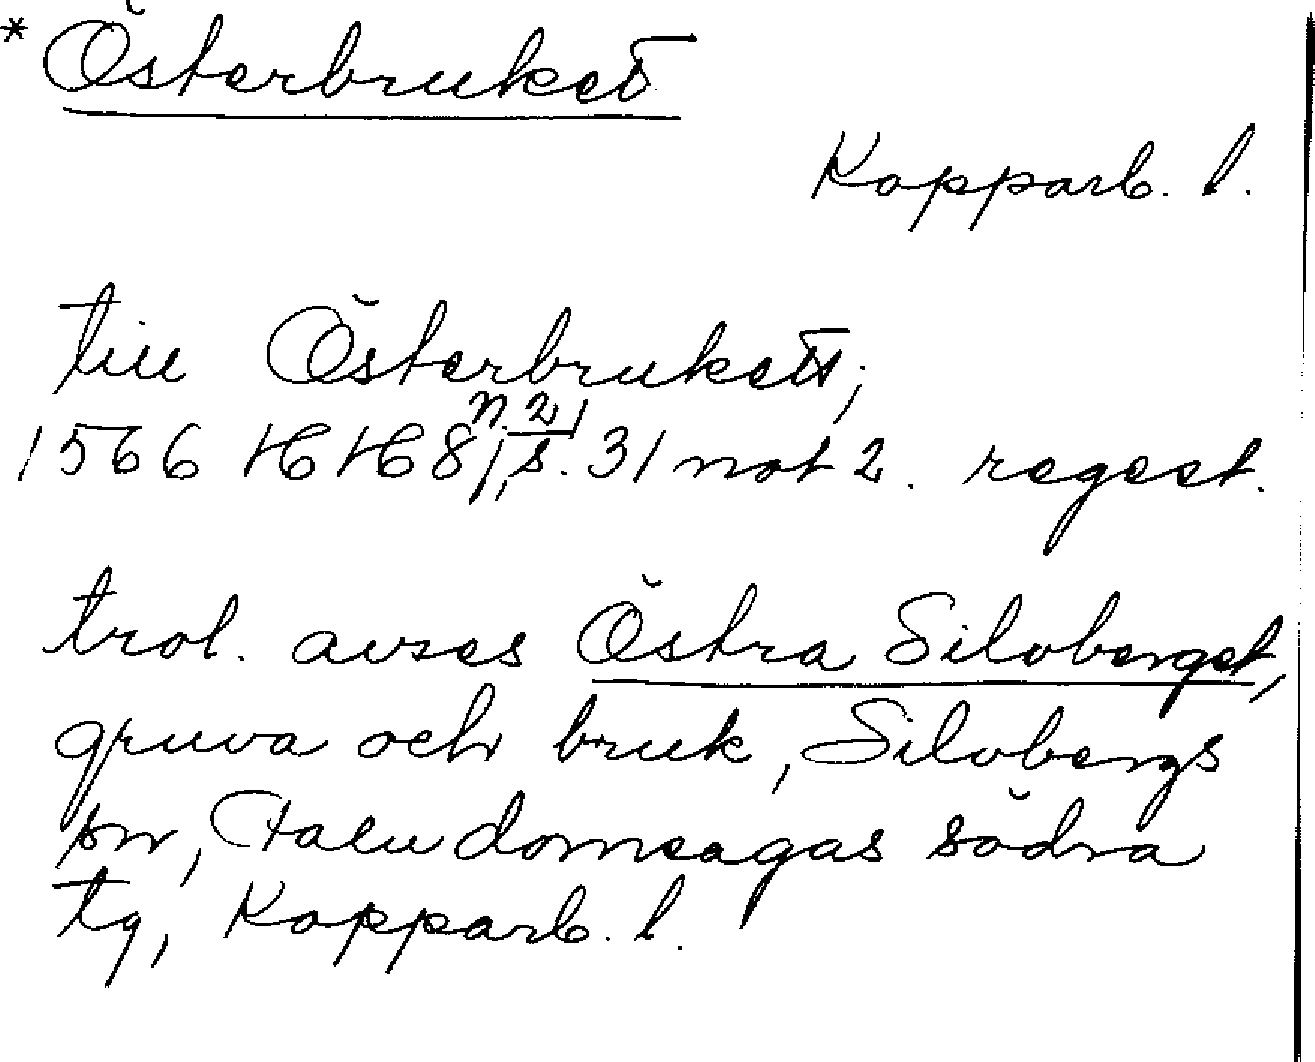 *Österbruket
Kopparb. l.
till Österbrukett;
1566 HH 8, n. 2, s. 31 not 2. regest.
trol. avses Östra Silvberget,
gruva och bruk, Silvbergs
sn, Falu domsagas södra
tg, Kopparb. l.